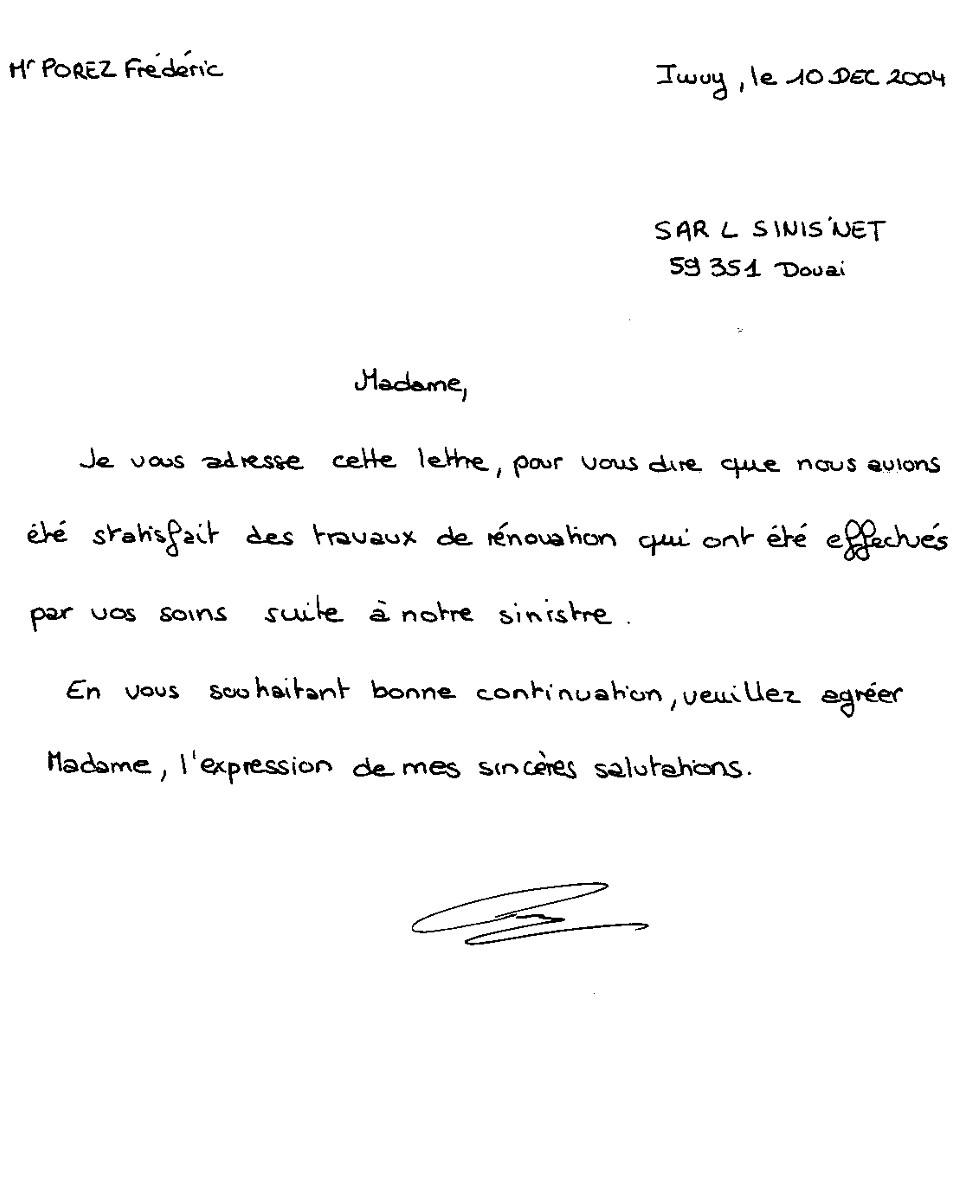 Mr POREZ Frédéric
Iwuy, le 10 DEC 2004
SAR L SINIS'NET
59 351 Douai
Madame,
Je vous adresse cette lettre, pour vous dire que nous avions
été statisfait des travaux de rénovation qui ont été effectués
par vos soins suite à notre sinistre.
En vous souhaitant bonne continuation, veuillez agréer
Madame, l'expression de mes sincères salutations.